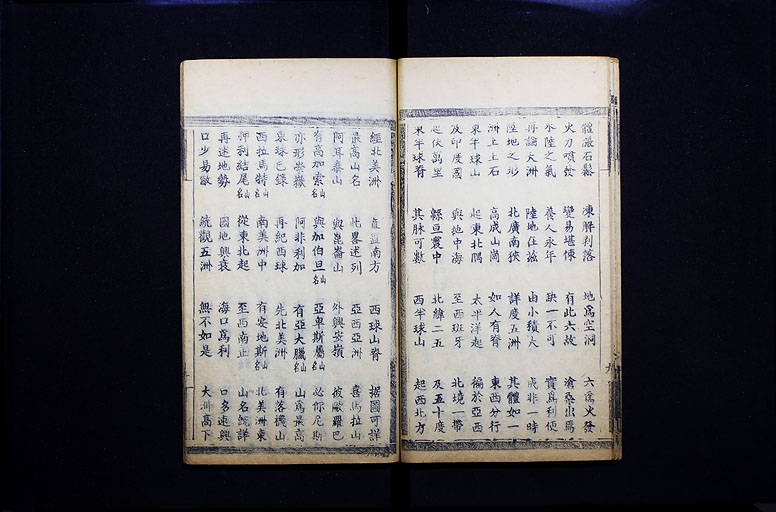 體濕石鬆 凍解剝落 地爲空洞 六爲火發
火力噴發 變易堪悚 有此六故 滄桑出焉
水陸之氣 養人永年 缺一不可 實爲利便
再論大洲 陸地住茲 由小積大 成非一時
陸地之形 北廣南狹 詳度五洲 其體如一
洲上土石 高成山崗 如人有脊 東西分行
東半球山 起東北隅 太平洋起 徧於亞西
及印度國 與地中海 至西班牙 北境一帶
起伏萬里 緜亘震中 北緯二五 及五十度
東半球脊 其脉可數 西半球山 起西北方
經北美洲 直亘南方 西球山脊 据圖可詳
最高山名 此畧述列 亞西亞洲 喜馬拉山
阿耳泰山 與崑崙山 外興安嶺 彼歐羅巴
有高加索山名 與加伯旦山名 亞卑斯屬山名 必你尼斯
亦形崇嶽 阿非利加 有亞大臘山名 山爲最高
東球已錄 再紀西球 先北美洲 有落機山
西拉馬特山名 南美洲中 有安地斯山名 北美洲東
押利結尾山名 從東北起 至西南止 山名統詳
再述地勢 國地興衰 海口爲利 口多速興
口少易敝 統觀五洲 無不如是 大洲高下